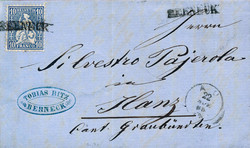 10 10
FRANCO
BERNECK
BERNECK
Herrn
Silvestro Pajerola
in
Ilanz
Cant. Graubünden.
TOBIAS RITZ
BERNECK